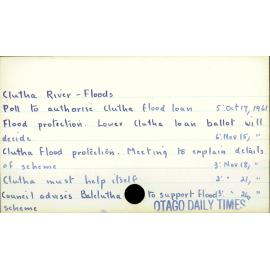 Clutha River - Floods
Poll to authorise Clutha flood loan 5: Oct 17, 1961
Flood protection. Lower Clutha loan ballot will
decide 6: Nov 15, "
Clutha Flood protection. Meeting to explain details
of scheme 3: Nov 18, "
Clutha must help itself 2: " 21, "
Council advises Balclutha to support Flood 3: " 24, "
scheme OTAGO DAILY TIMES